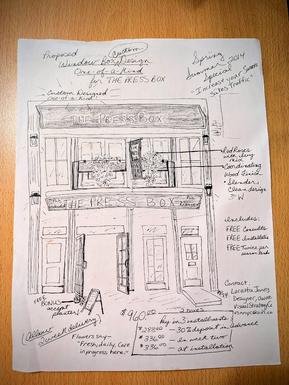 Proposed
Custom
Window Box Design
One-of-a-Kind
for THE PRESS BOX
Spring
Summer 2014
Special
"Increase your
Sales Traffic"
Custom Designed
One-of-a-Kind
THE PRESS BOX
THE PRESS BOX
Red Roses
with ivy
mix
Coordinating
Wood Finish
Slender,
Clean design
Includes:
FREE Consults
FREE Installate
FREE
FREE
BONUS
accent
planter!
Allow
2 week delivery
Flowers stay
"Fresh, daily. Care
in progress here."
$960.00
Pay in 3 installments
$288.00 - 30% deposit in Advance
$336.00 - in week two
$336.00 - at installation
Contact:
Loretta Jones
Designer, Owner